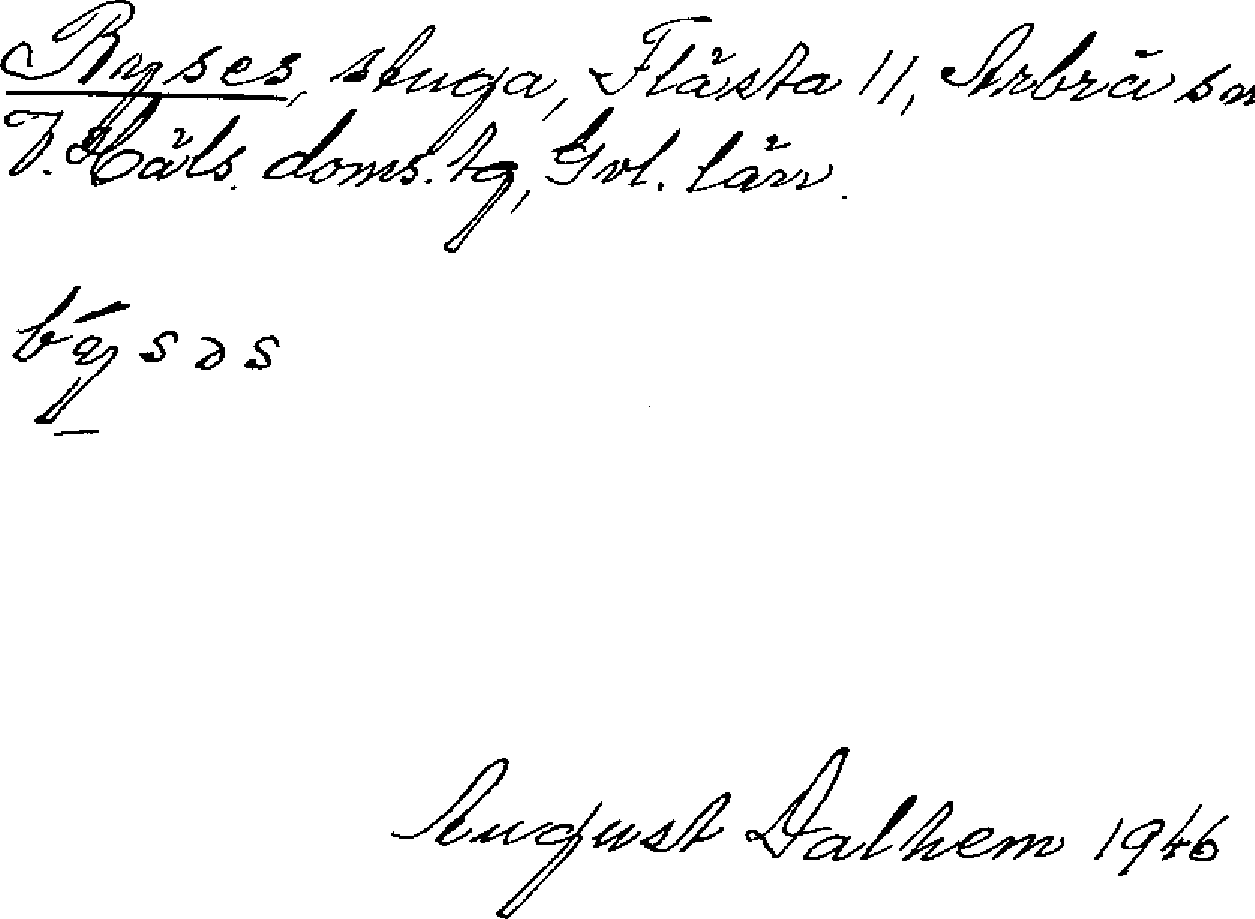 Byses, stuga, Flästa 11, Arbrå sn
V. Häls. doms. tg, Gvl. län.
býsəs
August Dalhem 1946